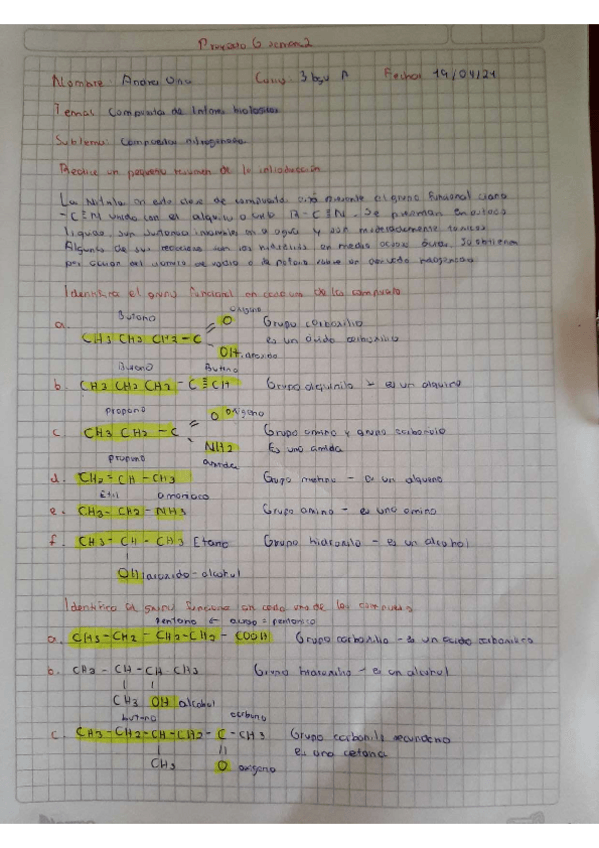 Proyecto 6 semana2
Nombre: Andrea Curso: 3 bgu A Fecha: 19/04/21
Tema: Compuestos de Interes biologicos
Subtema: Compuestos nitrogenados
Realice un pequeño resumen de la introducción
La en esta clase de compuesto, está presente el grupo funcional ciano
-C≡N unido con el alquilo o arilo R-C≡N. Se presentan en estado
liquido, son sustancia insoluble en agua y son moderadamente toxicos
Algunas de sus reacciones son los hidrolisis en medio acido. Se obtiene
por accion del cianuro de sodio o de potasio sobre un derivado halogenado
Identifica el grupo funcional en cada uno de los compuesto
Butano oxigeno
a. CH3 CH2 CH2 - C = O Grupo carboxilo
es un ácido carboxílico
OH
Butano Butino
b. CH3 CH2 CH2 - C ≡ CH Grupo alquinilo - es un alquino
propano O oxigeno
c. CH3 CH2 - C = Grupo amino y grupo carbonilo
NH2 Es una amida
propano amida
d. CH2 = CH - CH3 Grupo - es un alqueno
Etil amoniaco
e. CH3 - CH2 - NH3 Grupo amino - es una amino
f. CH3 - CH - CH3 Etano Grupo hidroxilo - es un alcohol
OH - alcohol
Identifica el grupo funcional en cada uno de los compuestos
pentano
a. CH3 - CH2 - CH2 - CH2 - COOH Grupo carboxilio - es un ácido carboxilico
b. CH2 - CH - CH - CH3 Grupo hidroxilo - es un alcohol
CH3 OH alcohol
butano carbono
c. CH3 - CH2 - CH - CH2 - C - CH3 Grupo carbonilo secundario
es una cetona
CH3 O oxigeno